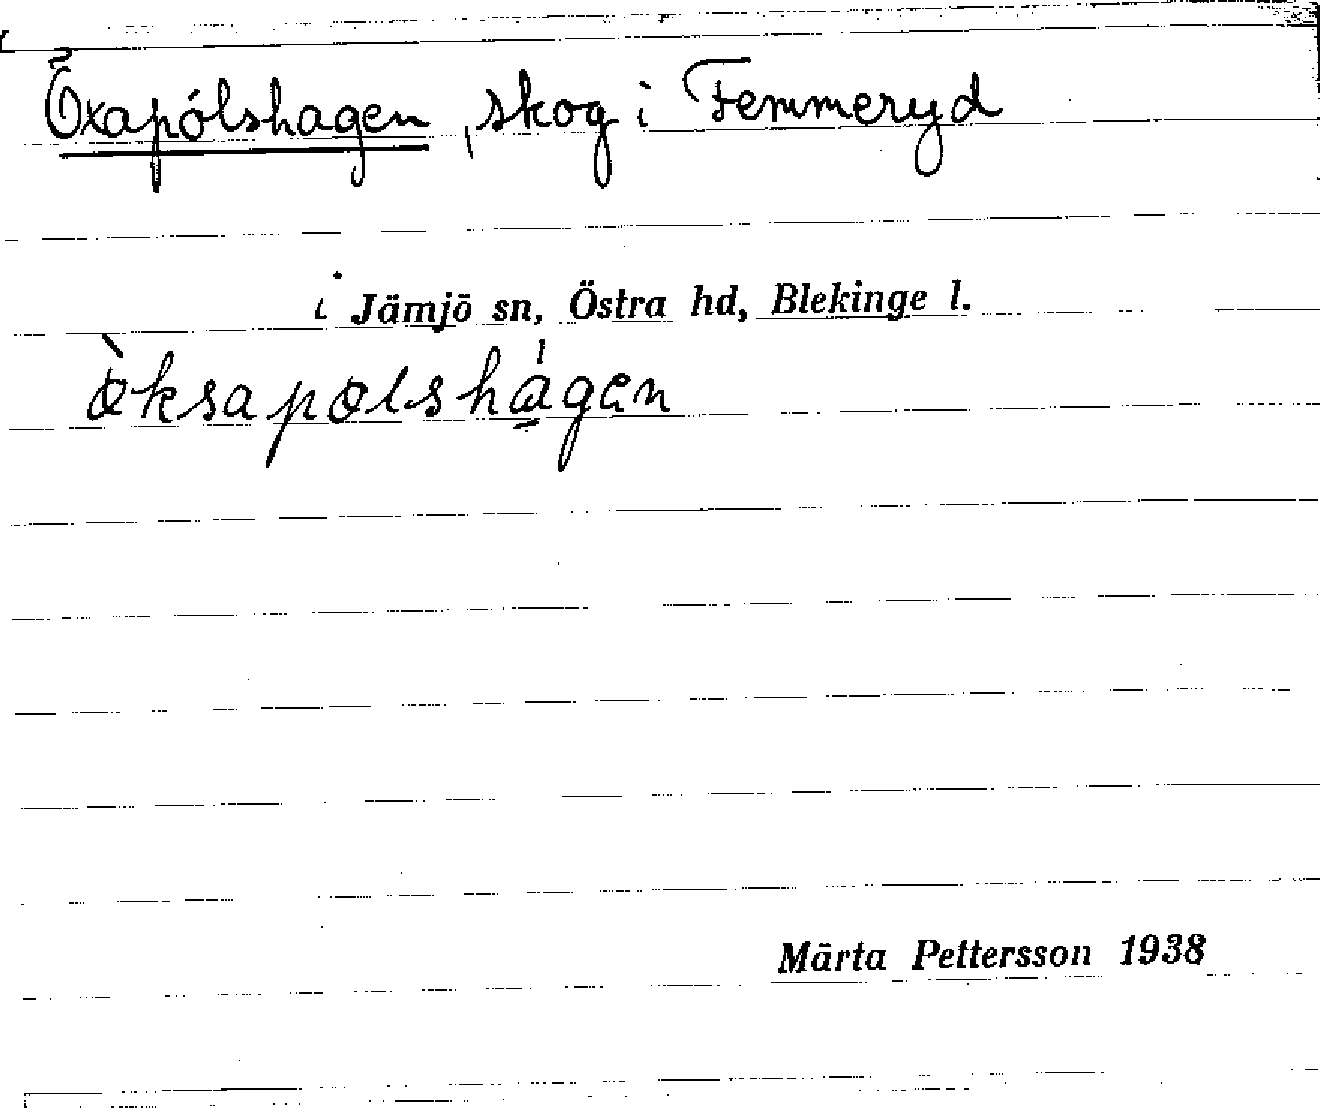 Öxapólshagen, skog i Femmeryd
i Jämjö sn, Östra hd, Blekinge l.
ö̀ksapölshágen
Märta Pettersson 1938